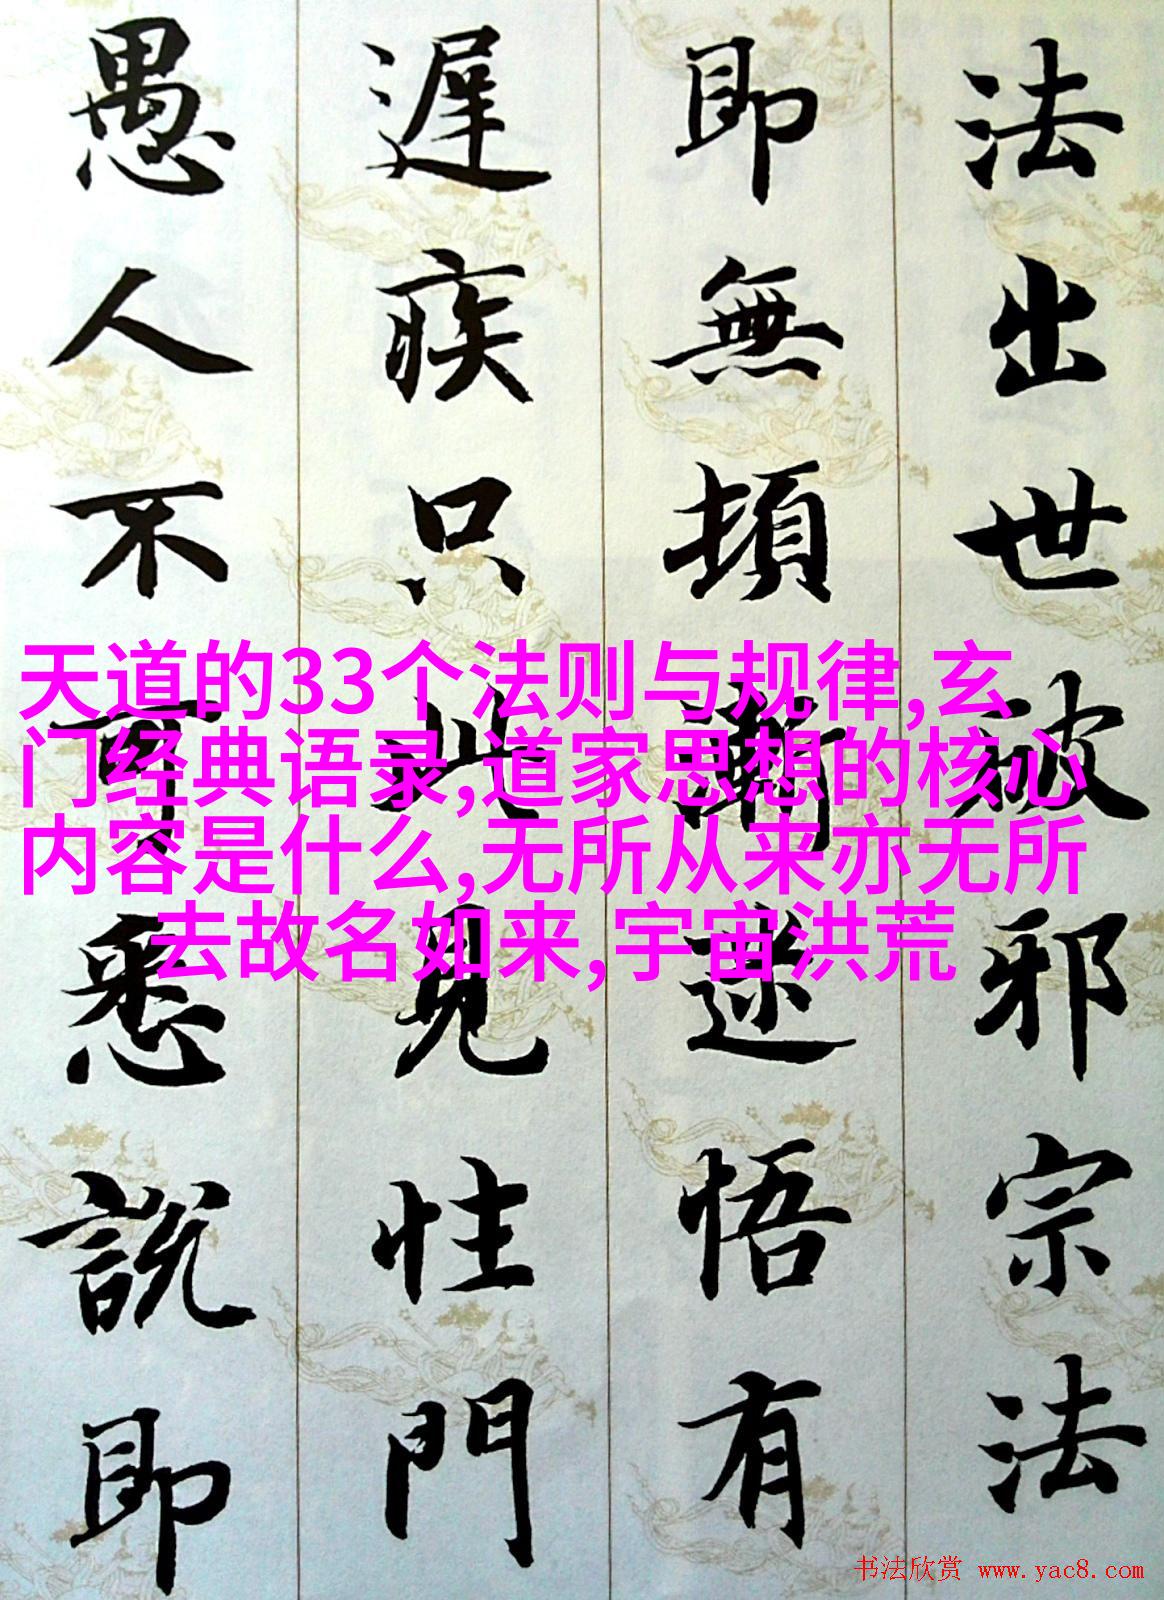 法出世破邪宗法
即無頓漸迷悟有
遲疾只此見性門
愚人不可悉說即
天道的33个法则与规律,玄
门经典语录,道家思想的核心
内容是什么,无所从来亦无所
去故名如来,宇宙洪荒
书法欣赏 www.yac8.com